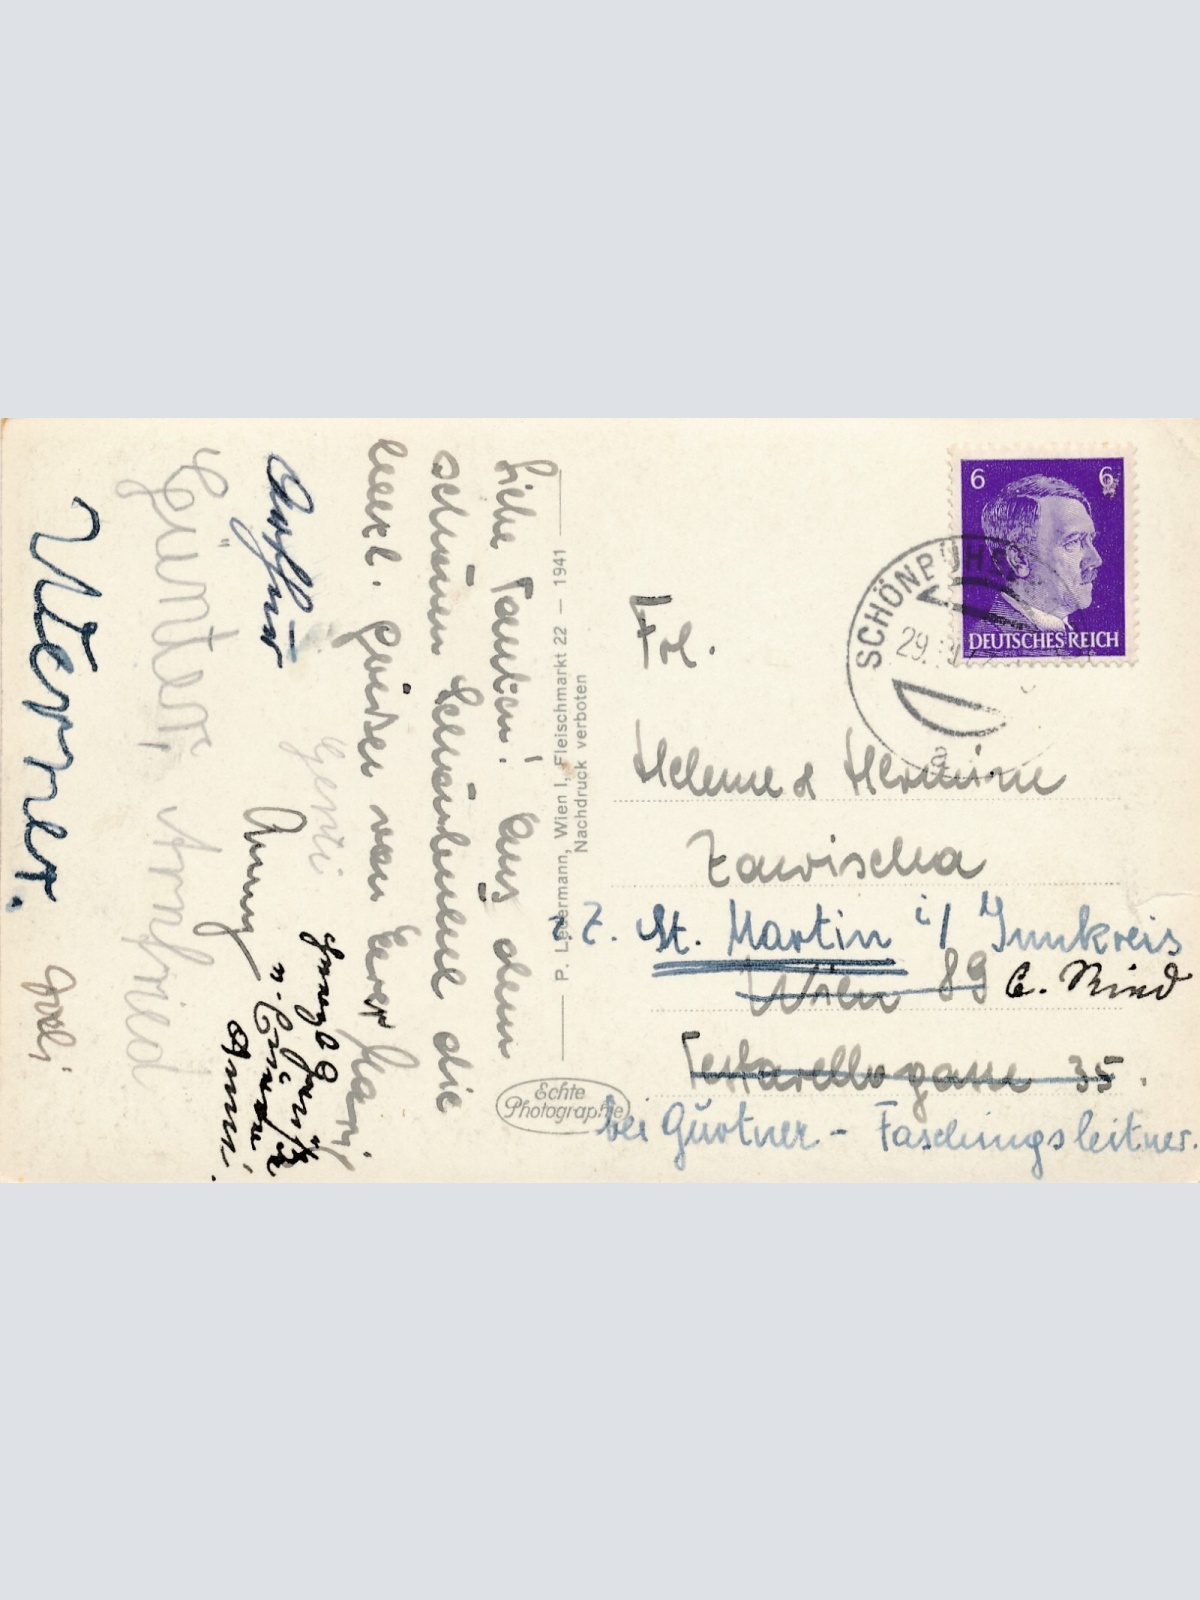 Liebe Tanten! Aus dem
schönen Schönbühel die
herzl. Grüße von Eurer Mari
Gerti
Anny
Günter, Arnfried
Werner.
P. Ledermann, Wien I, Fleischmarkt 22 – 1941
Nachdruck verboten
Echte
Photographie
6 6
DEUTSCHES REICH
SCHÖNBÜH
29.
a
Frl.
Helene & Hermine
Zawischa
z. Z. St. Martin i/ Innkreis
Wien 89 b. Ried
Testarellogasse 35.
bei Gurtner - Faschingsleitner.